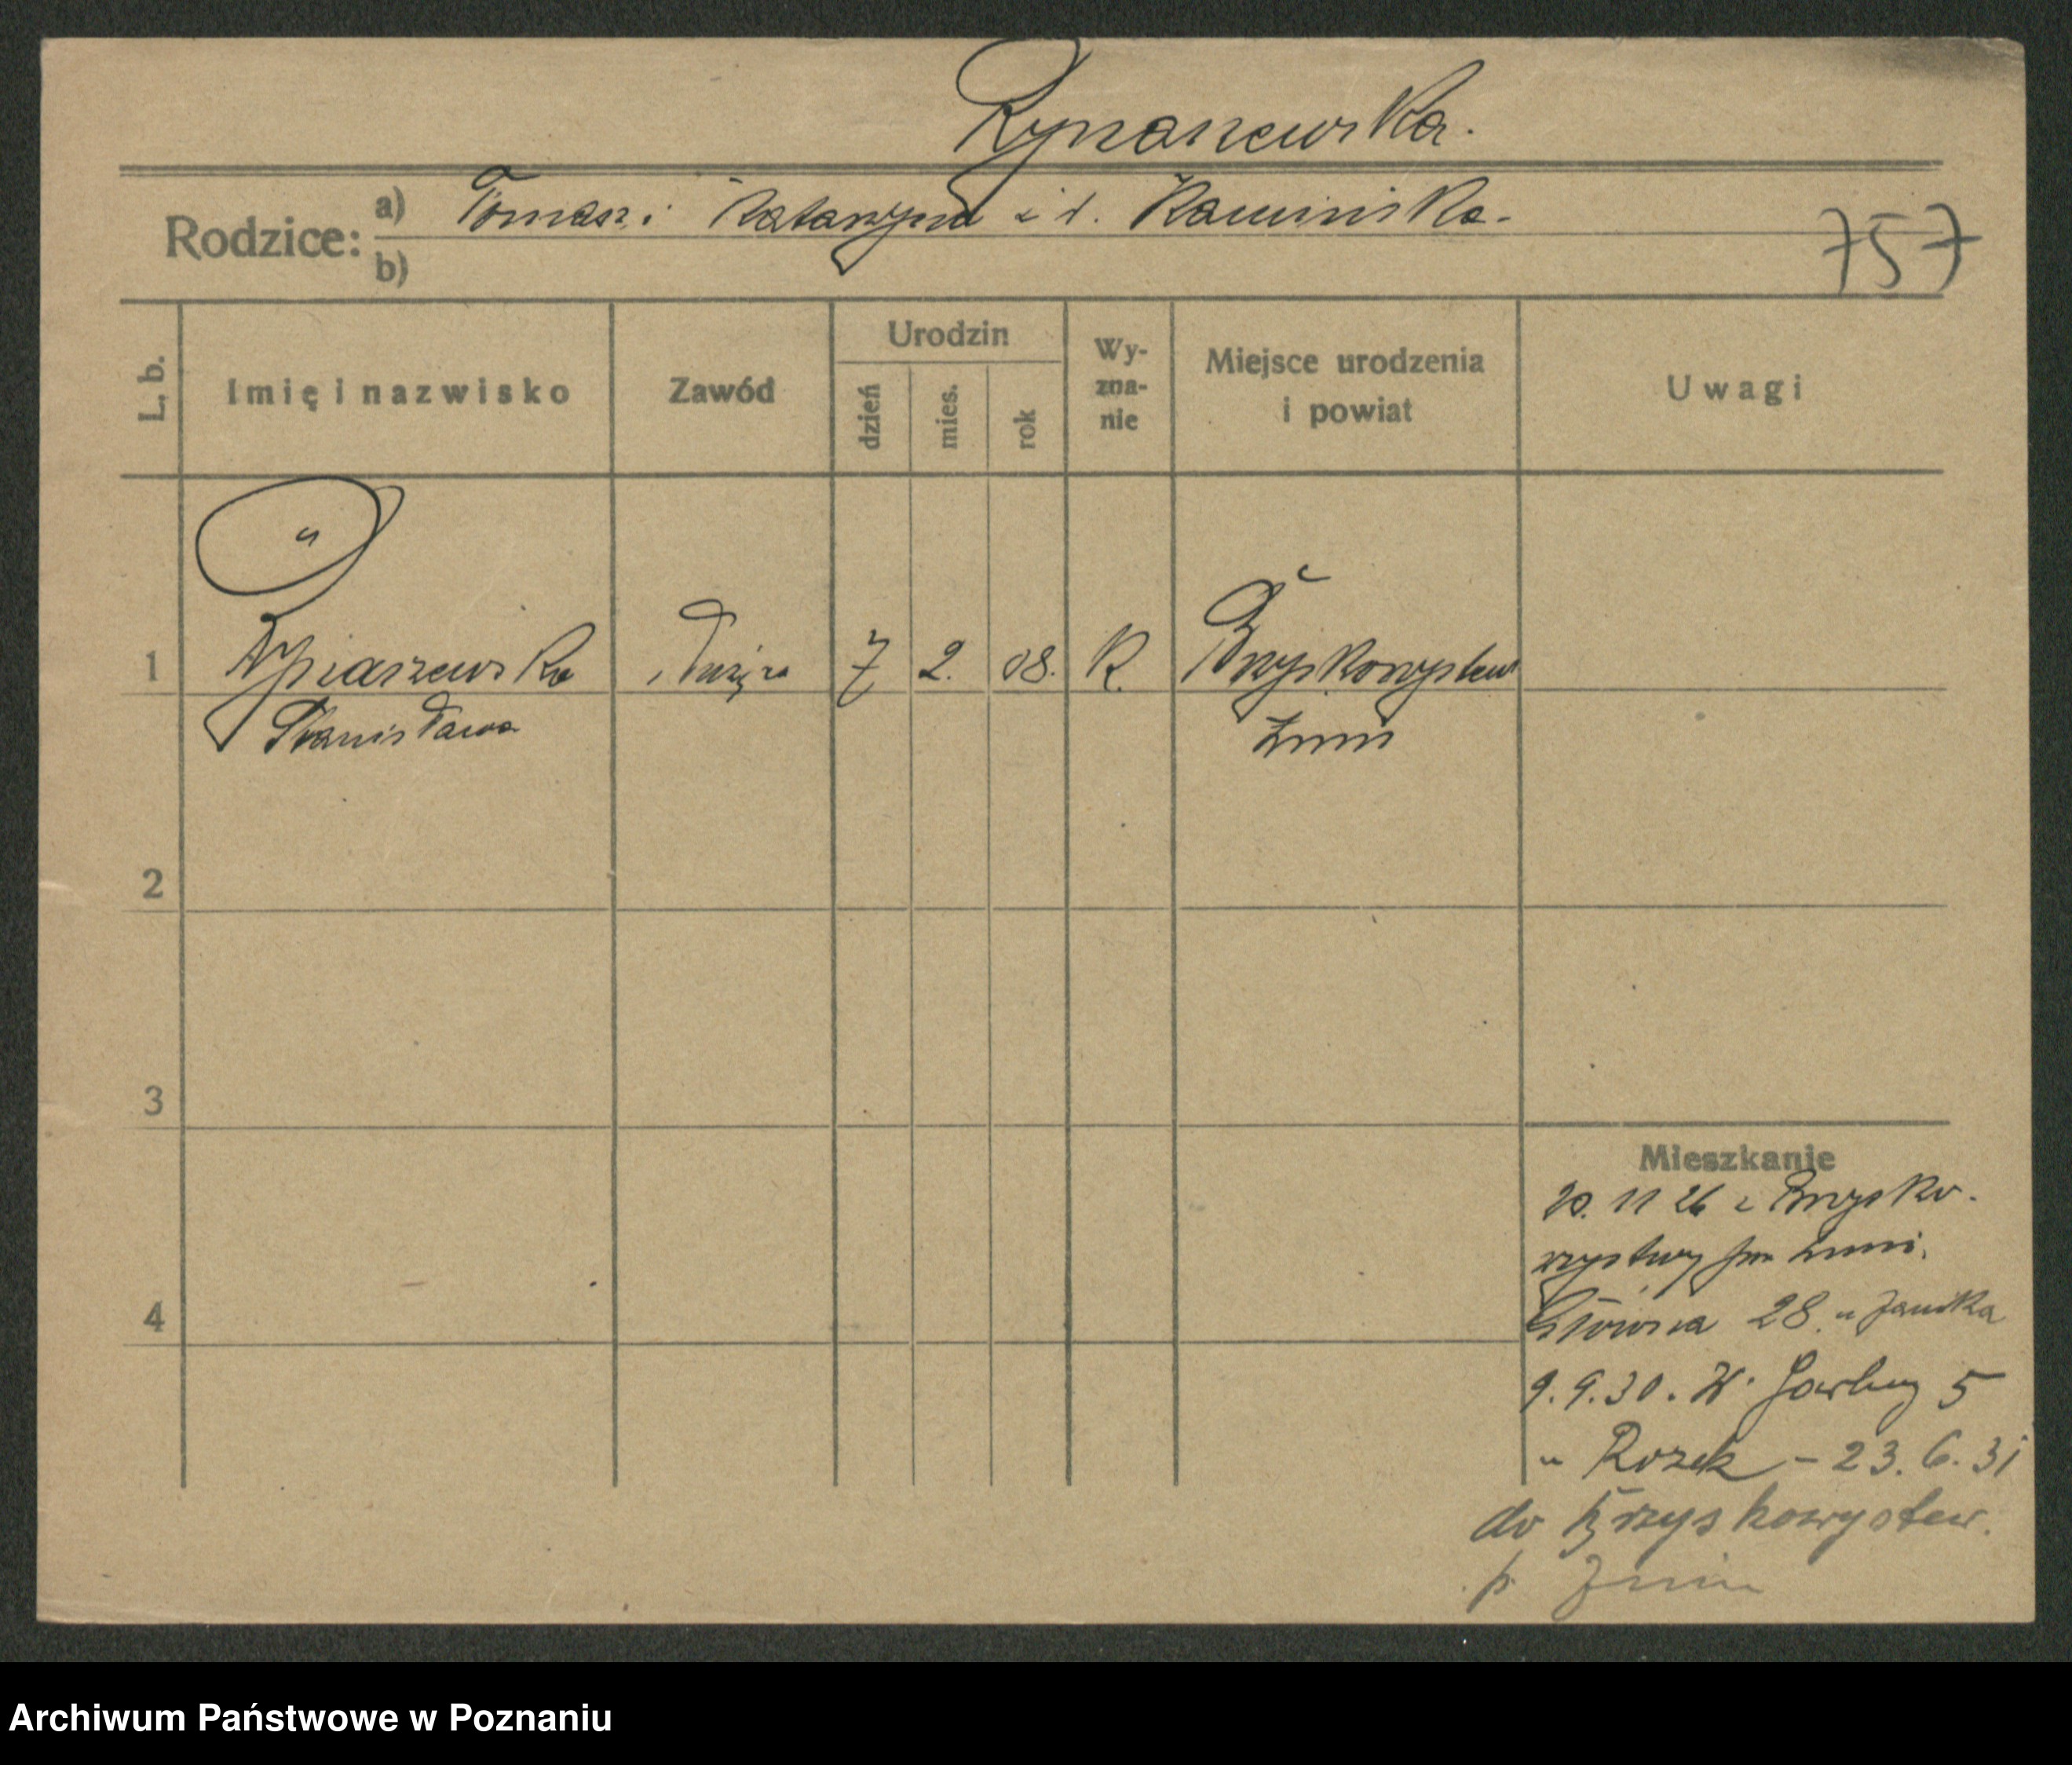 Rynarzewska.
Rodzice: a) Tomasz i Katarzyna z d. Kamińska.
b)
757
L. b. Imię i nazwisko Zawód Urodzin dzień mies. rok Wyznanie Miejsce urodzenia i powiat Uwagi
"
1 służąca 7 2. 08. K.
Stanisława Żnin
2
3
Mieszkanie
20. 11 26 z
Żnin.
4
Główna 28. u Janika
9.9.30. W. Garbary 5
u Rozek - 23. 6. 31
do
p. Żnin
Archiwum Państwowe w Poznaniu